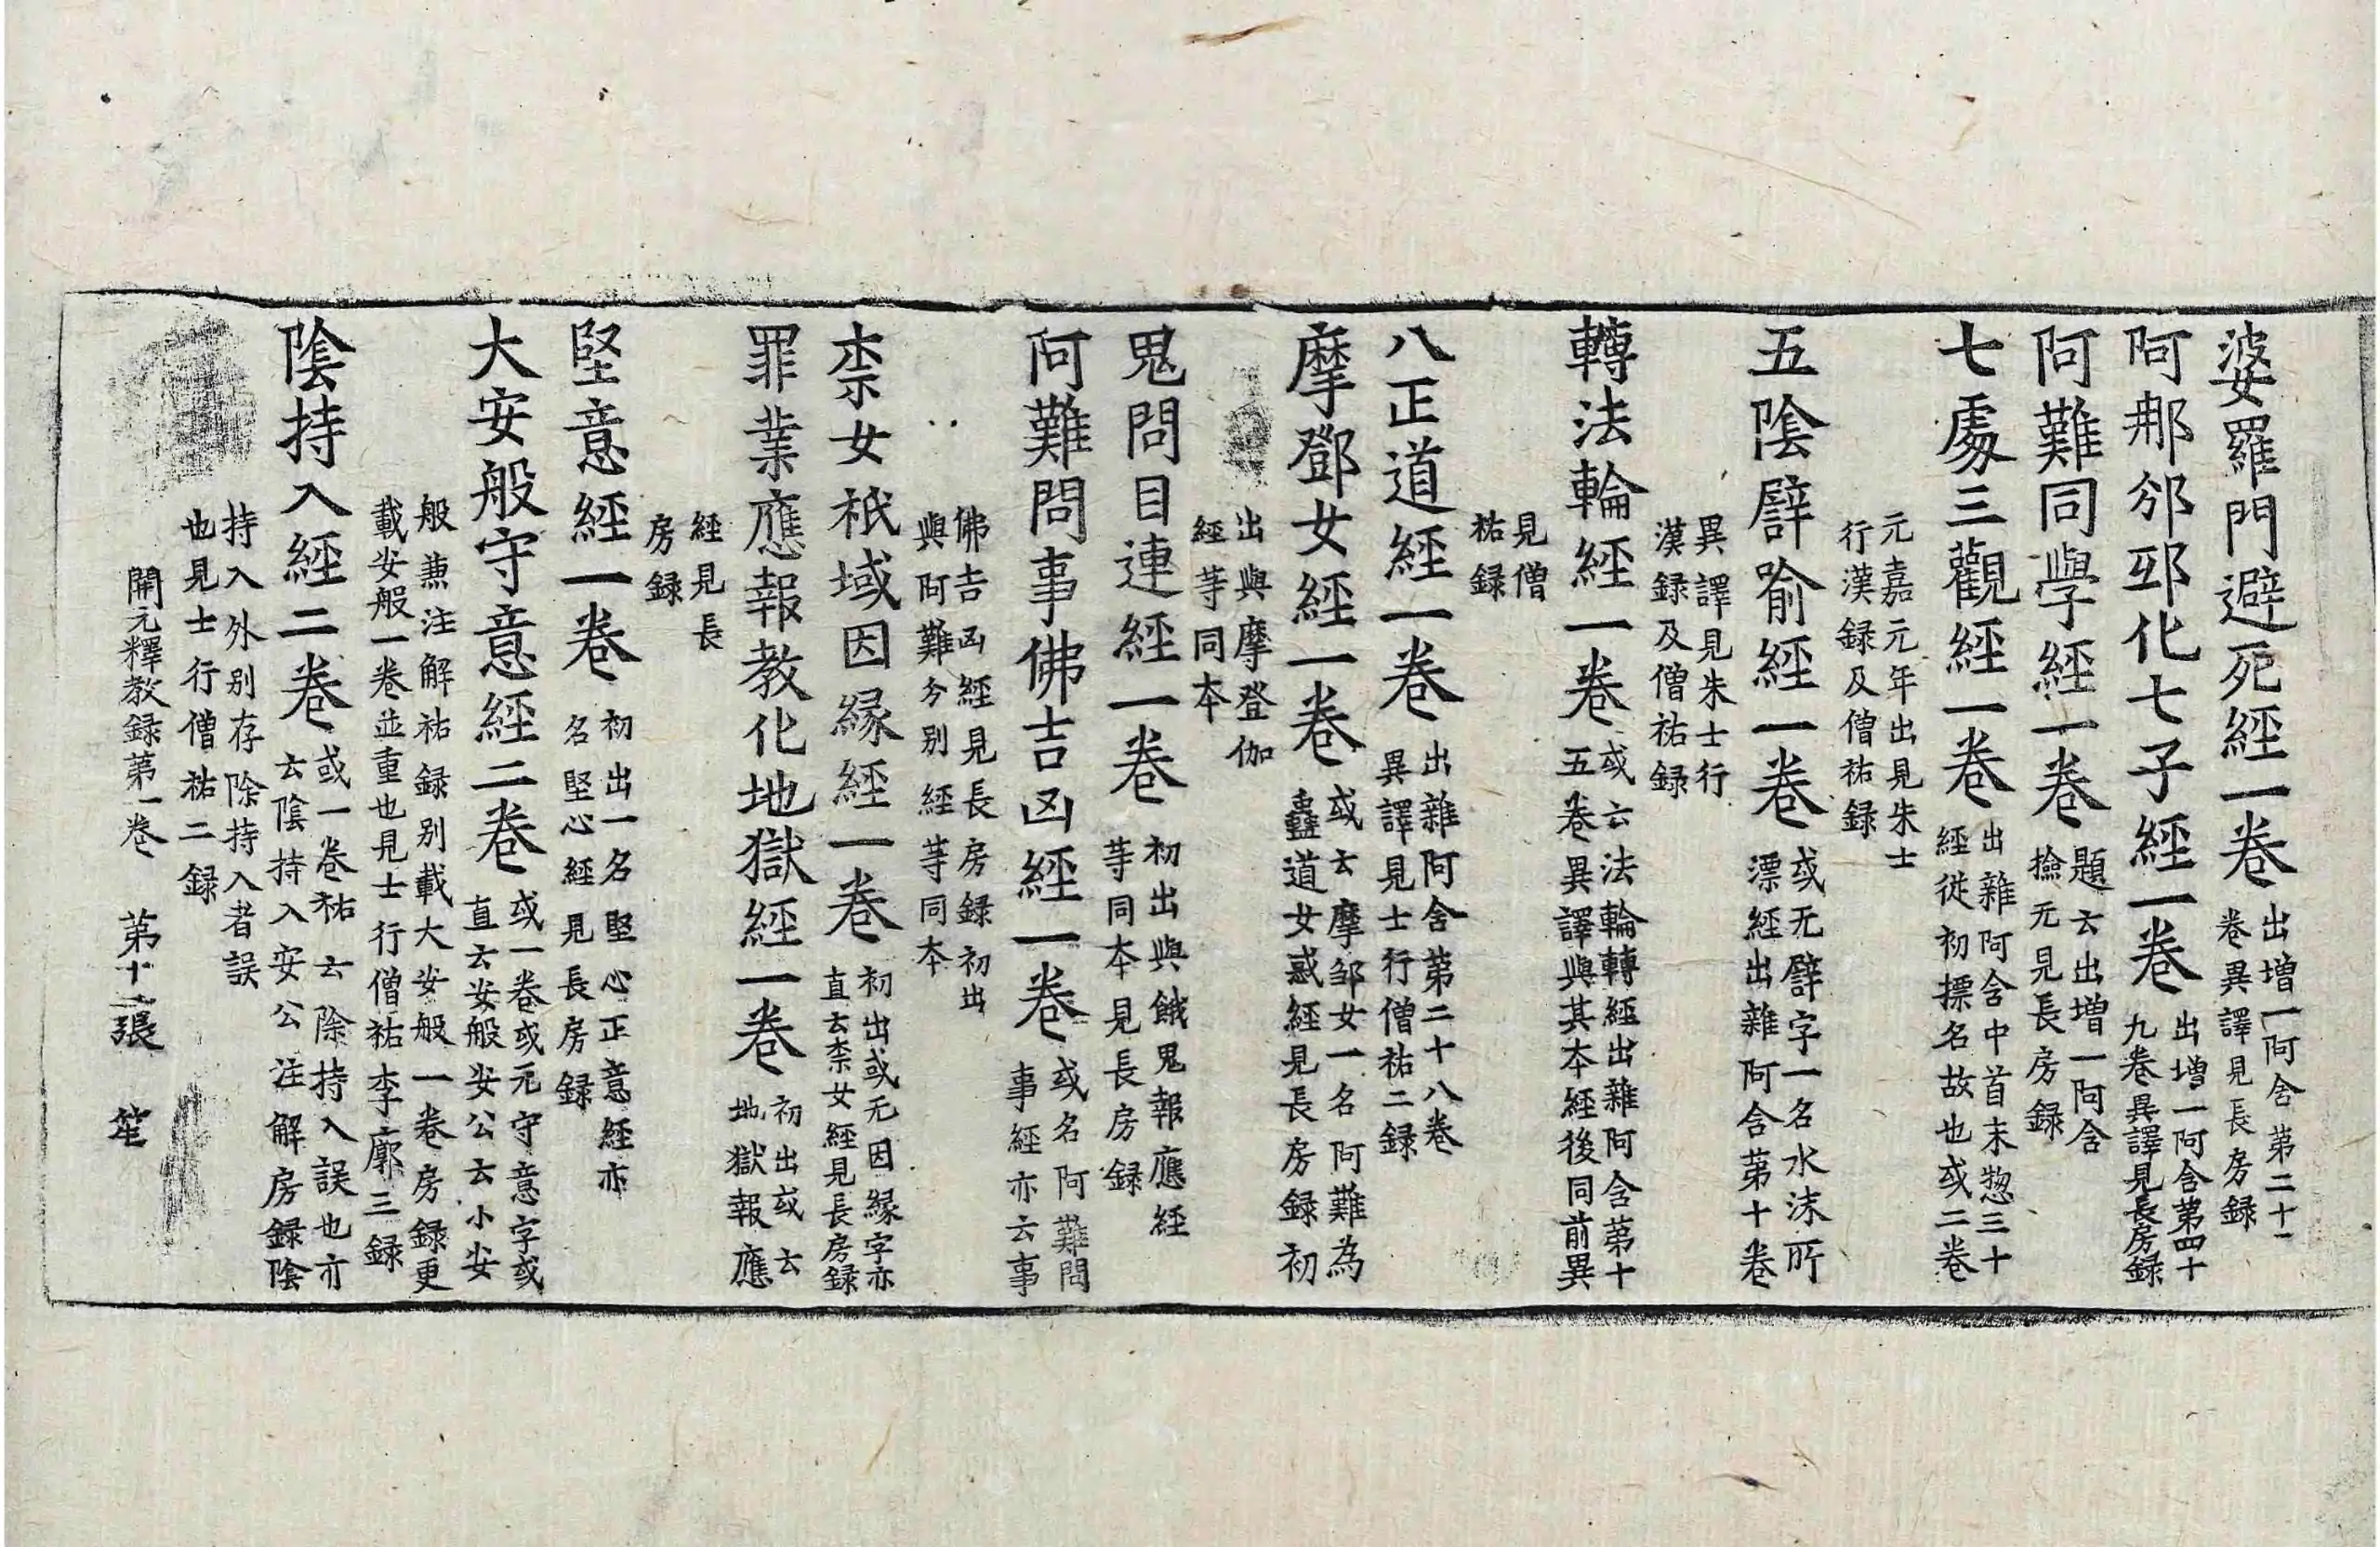 婆羅門避死經一卷出增一阿含第二十一卷異譯見長房錄
阿那邠邸化七子經一卷出增一阿含第四十九卷異譯見長房錄
阿難同學經一卷題云出增一阿含撿无見長房錄
七處三觀經一卷出雜阿含中首末惣三十經從初摽名故也或二卷
元嘉元年出見朱士行漢錄及僧祐錄
五陰譬喻經一卷或无譬字一名水沫所漂經出雜阿含第十卷
異譯見朱士行漢錄及僧祐錄
轉法輪經一卷或云法輪轉經出雜阿含第十五卷異譯與其本經後同前異
見僧祐錄
八正道經一卷出雜阿含第二十八卷異譯見士行僧祐二錄
摩鄧女經一卷或云摩邹女一名阿難為蠱道女惑經見長房錄初
出與摩登伽經等同本
鬼問目連經一卷初出與餓鬼報應經等同本見長房錄
阿難問事佛吉凶經一卷或名阿難問事經亦云事
佛吉凶經見長房錄初出與阿難分別經等同本
柰女祇域因緣經一卷初出或无因緣字亦直云柰女經見長房錄
罪業應報教化地獄經一卷初出或云地獄報應
經見長房錄
堅意經一卷初出一名堅心正意經亦名堅心經見長房錄
大安般守意經二卷或一卷或无守意字或直云安般安公云小安
般兼注解祐錄別載大安般一卷房錄更載安般一卷並重也見士行僧祐李廓三錄
陰持入經二卷或一卷祐云除持入誤也亦云陰持入安公注解房錄陰
持入外別存除持入者誤也見士行僧祐二錄
開元釋教錄第一卷　第十二張　笙